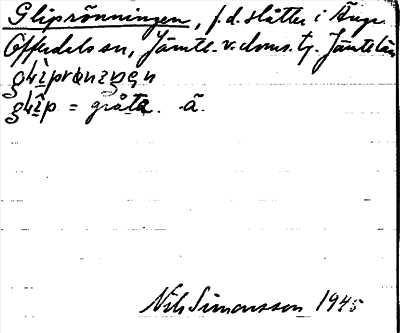 Gliprönningen, f.d. slåtter i Ånge
Offerdals sn, Jämtl. v. doms. tg. Jämtl. län
glìprönɩŋen
glîp = gråta. -ã.
Nils Simonsson 1945